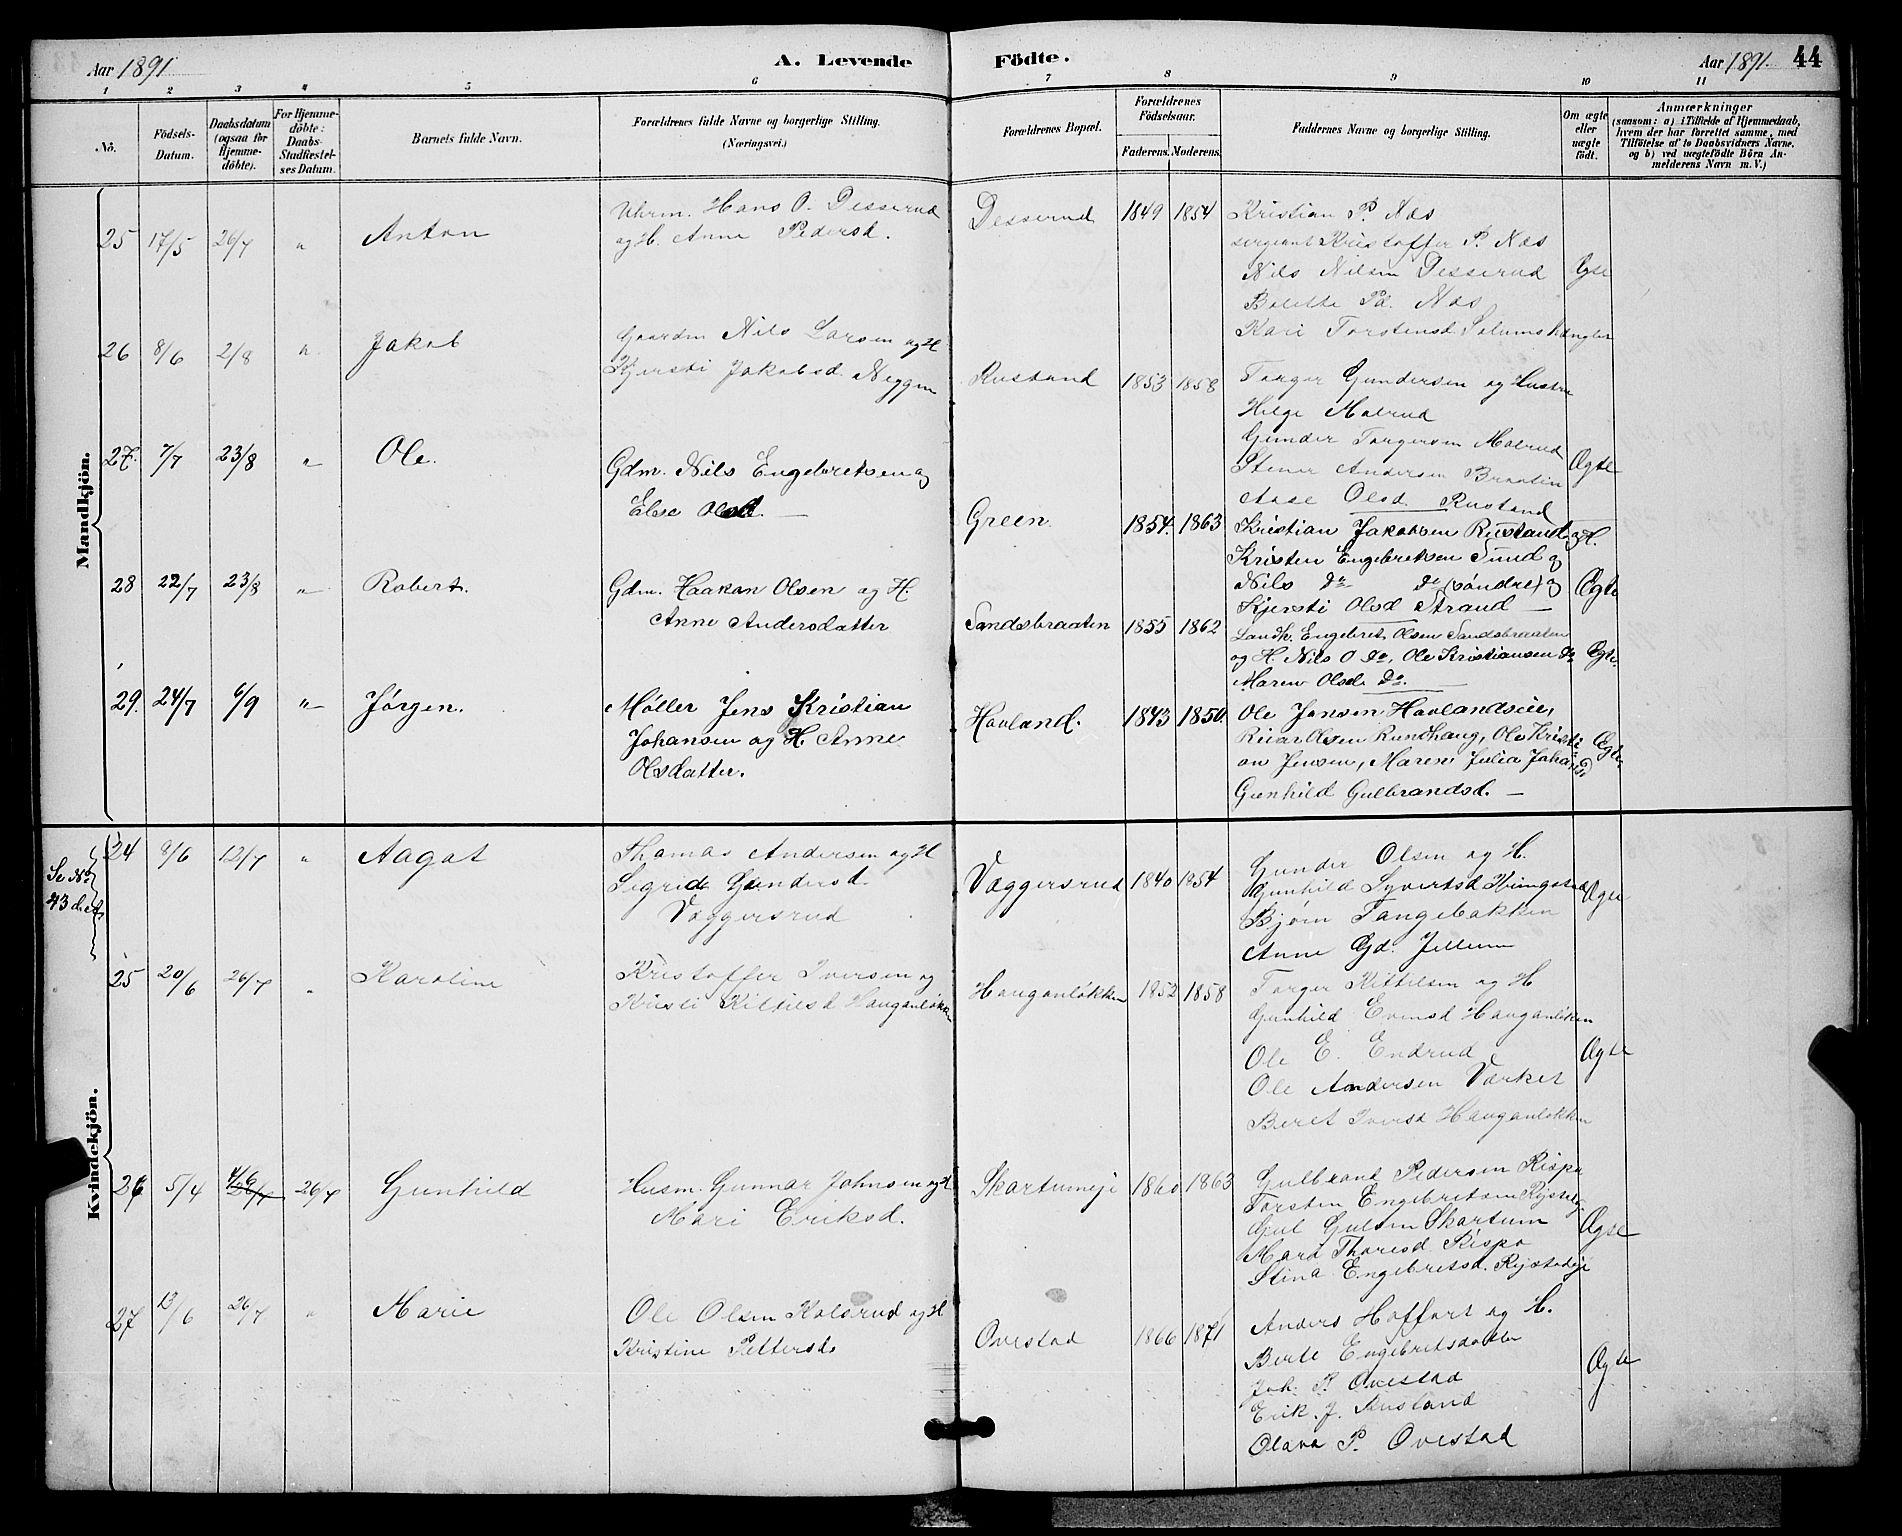 Aar 1891
A. Levende Födte.
Aar 1891. 44
1 2 3 4 5 6 7 8 9 10 11
No.
Födsels-
Datum.
Daabsdatum
(ogsaa for
Hjemme-
döbte).
For Hjemme-
döbte:
Daabs-
Stadfæstel-
ses Datum.
Barnets fulde Navn.
Forældrenes fulde Navne og borgerlige Stilling.
(Næringsvei.)
Forældrenes Bopæl.
Forældrenes
Födselsaar.
Faderens. Moderens.
Faddernes Navne og borgerlige Stilling.
Om ægte
eller
uægte
født.
Anmærkninger
(saasom: a) i Tilfælde af Hjemmedaab,
hvem der har forrettet samme, med
Tilföielse af to Daabsvidners Navne,
og b) ved uægtefödte Börn An-
melderens Navn m. V.)
Mandkjön.
25 17/5 26/7 " Anton
Hans O. Desserud
og H. Anne Pedersd.
Desserud 1849 1854
Kristian P. Næs
sergeant Kristoffer P. Næs
Nils Nilsen Desserud
Bolette Pd. Næs
Kari Torstensd Solums
Ægte
26 8/6 2/8 " Jakob
Gaardm Nils Larsen og H
Kjersti Jakobsd.
Rustand 1853 1858
Torger Gundersen og Hustru
Helge Molrud
Gunder Torgersen Molrud
Stener Andersen Braatin
Aase Olsd Rustand
Ægte
27. 7/7 23/8 " Ole.
Gdm. Nils Engebretsen og
Else Olsd. —
Green 1854. 1863
Kristian Jakobsen Rustand og H.
Kristen Engebretsen Sund og
Nils Do Do (söndre) og
Kjersti Olsd Strand —
Ægte
28 22/7 23/8 " Robert.
Gdm. Haakon Olsen og H.
Anne Andersdatter
Sandsbraaten 1855 1862
Landh. Engebret Olsen Sandsbraaten
og H. Nils O Do, Ole Kristiansen Do
Maren Olsd. Do. —
Ægte.
29. 24/7 6/9 " Jørgen.
Møller Jens Kristian
Johansen og H. Anne
Olsdatter.
Havland. 1843 1850.
Ole Jensen Havlandseie,
Olsen Rundhaug, Ole Kristi-
an Jensen, Maren Julia Johansd
Gunhild Gulbrandsd. —
Ægte.
Kvindekjön.
Se No
43
24 9/6 12/7 " Aagot
Thomas Andersen og H
Sigrid Gundersd.
Væggersrud
Væggersrud 1840 1854
Gunder Olsen og H.
Gunhild Syvertsd
Bjørn Tangebakken
Anne Gd. Jellum
Ægte
25 20/6 26/7 " Karoline
Kristoffer Iversen og
Kristi Kittilsd Hauganløkken
Hauganløkken 1852 1858
Torger Kittilsen og H
Gunhild Evensd Hauganløkken
Ole E. Endrud
Ole Andersen Værket
Beret Iversd Hauganløkken
Ægte
26 5/4 26/7 Gunhild
Husm. Gunnar Johnsen og H
Mari Eriksd.
Skartumeje 1860 1863
Gulbrand Pedersen Rispa
Torsten Engebretsen
Gul Gulsen Skartum
Mari Thoresd. Rispa
Stina Engebretsd.
Ægte
27 13/6 26/7 " Marie
Ole Olsen Kolsrud og H
Kristine Pettersd.
Ovestad 1866 1871
Anders Hoffart og H.
Berte Engebretsdatter
Joh. P. Ovestad
Erik. J. Rusland
Olava P. Ovestad
Ægte